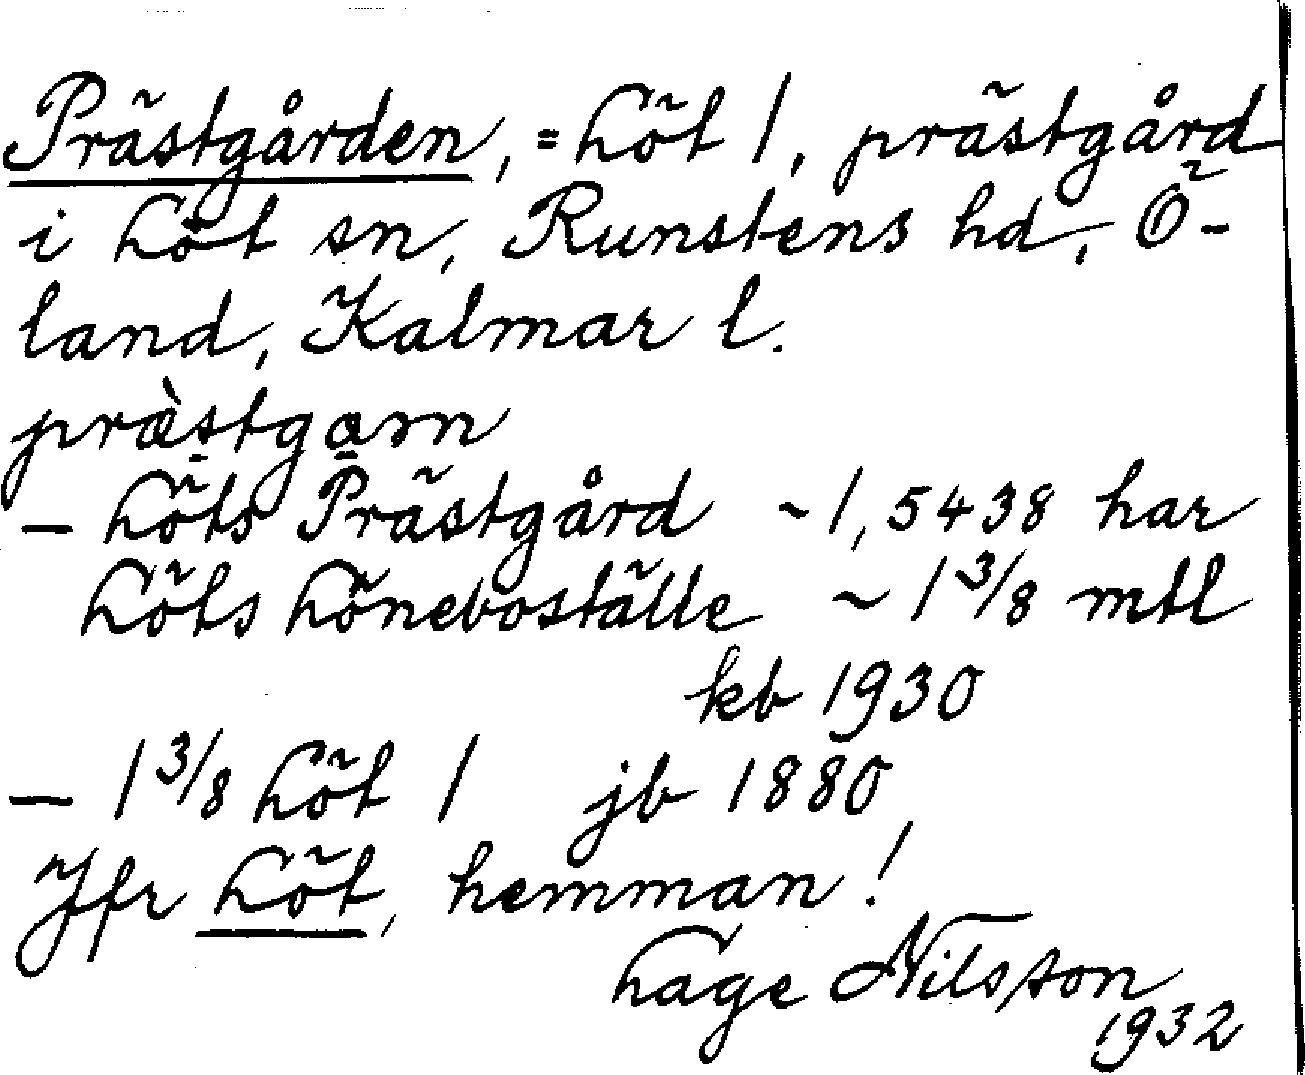 Prästgården, = Löt 1, prästgård
i Löt sn, Runstens hd, Ö-
land, Kalmar l.
præ̀stgɑm
— Löts Prästgård ~ 1,5438 har
Löts Löneboställe ~ 1 3/8 mtl
kb 1930
— 1 3/8 Löt 1 jb 1880
Jfr Löt, hemman!
Lage Nilsson
1932